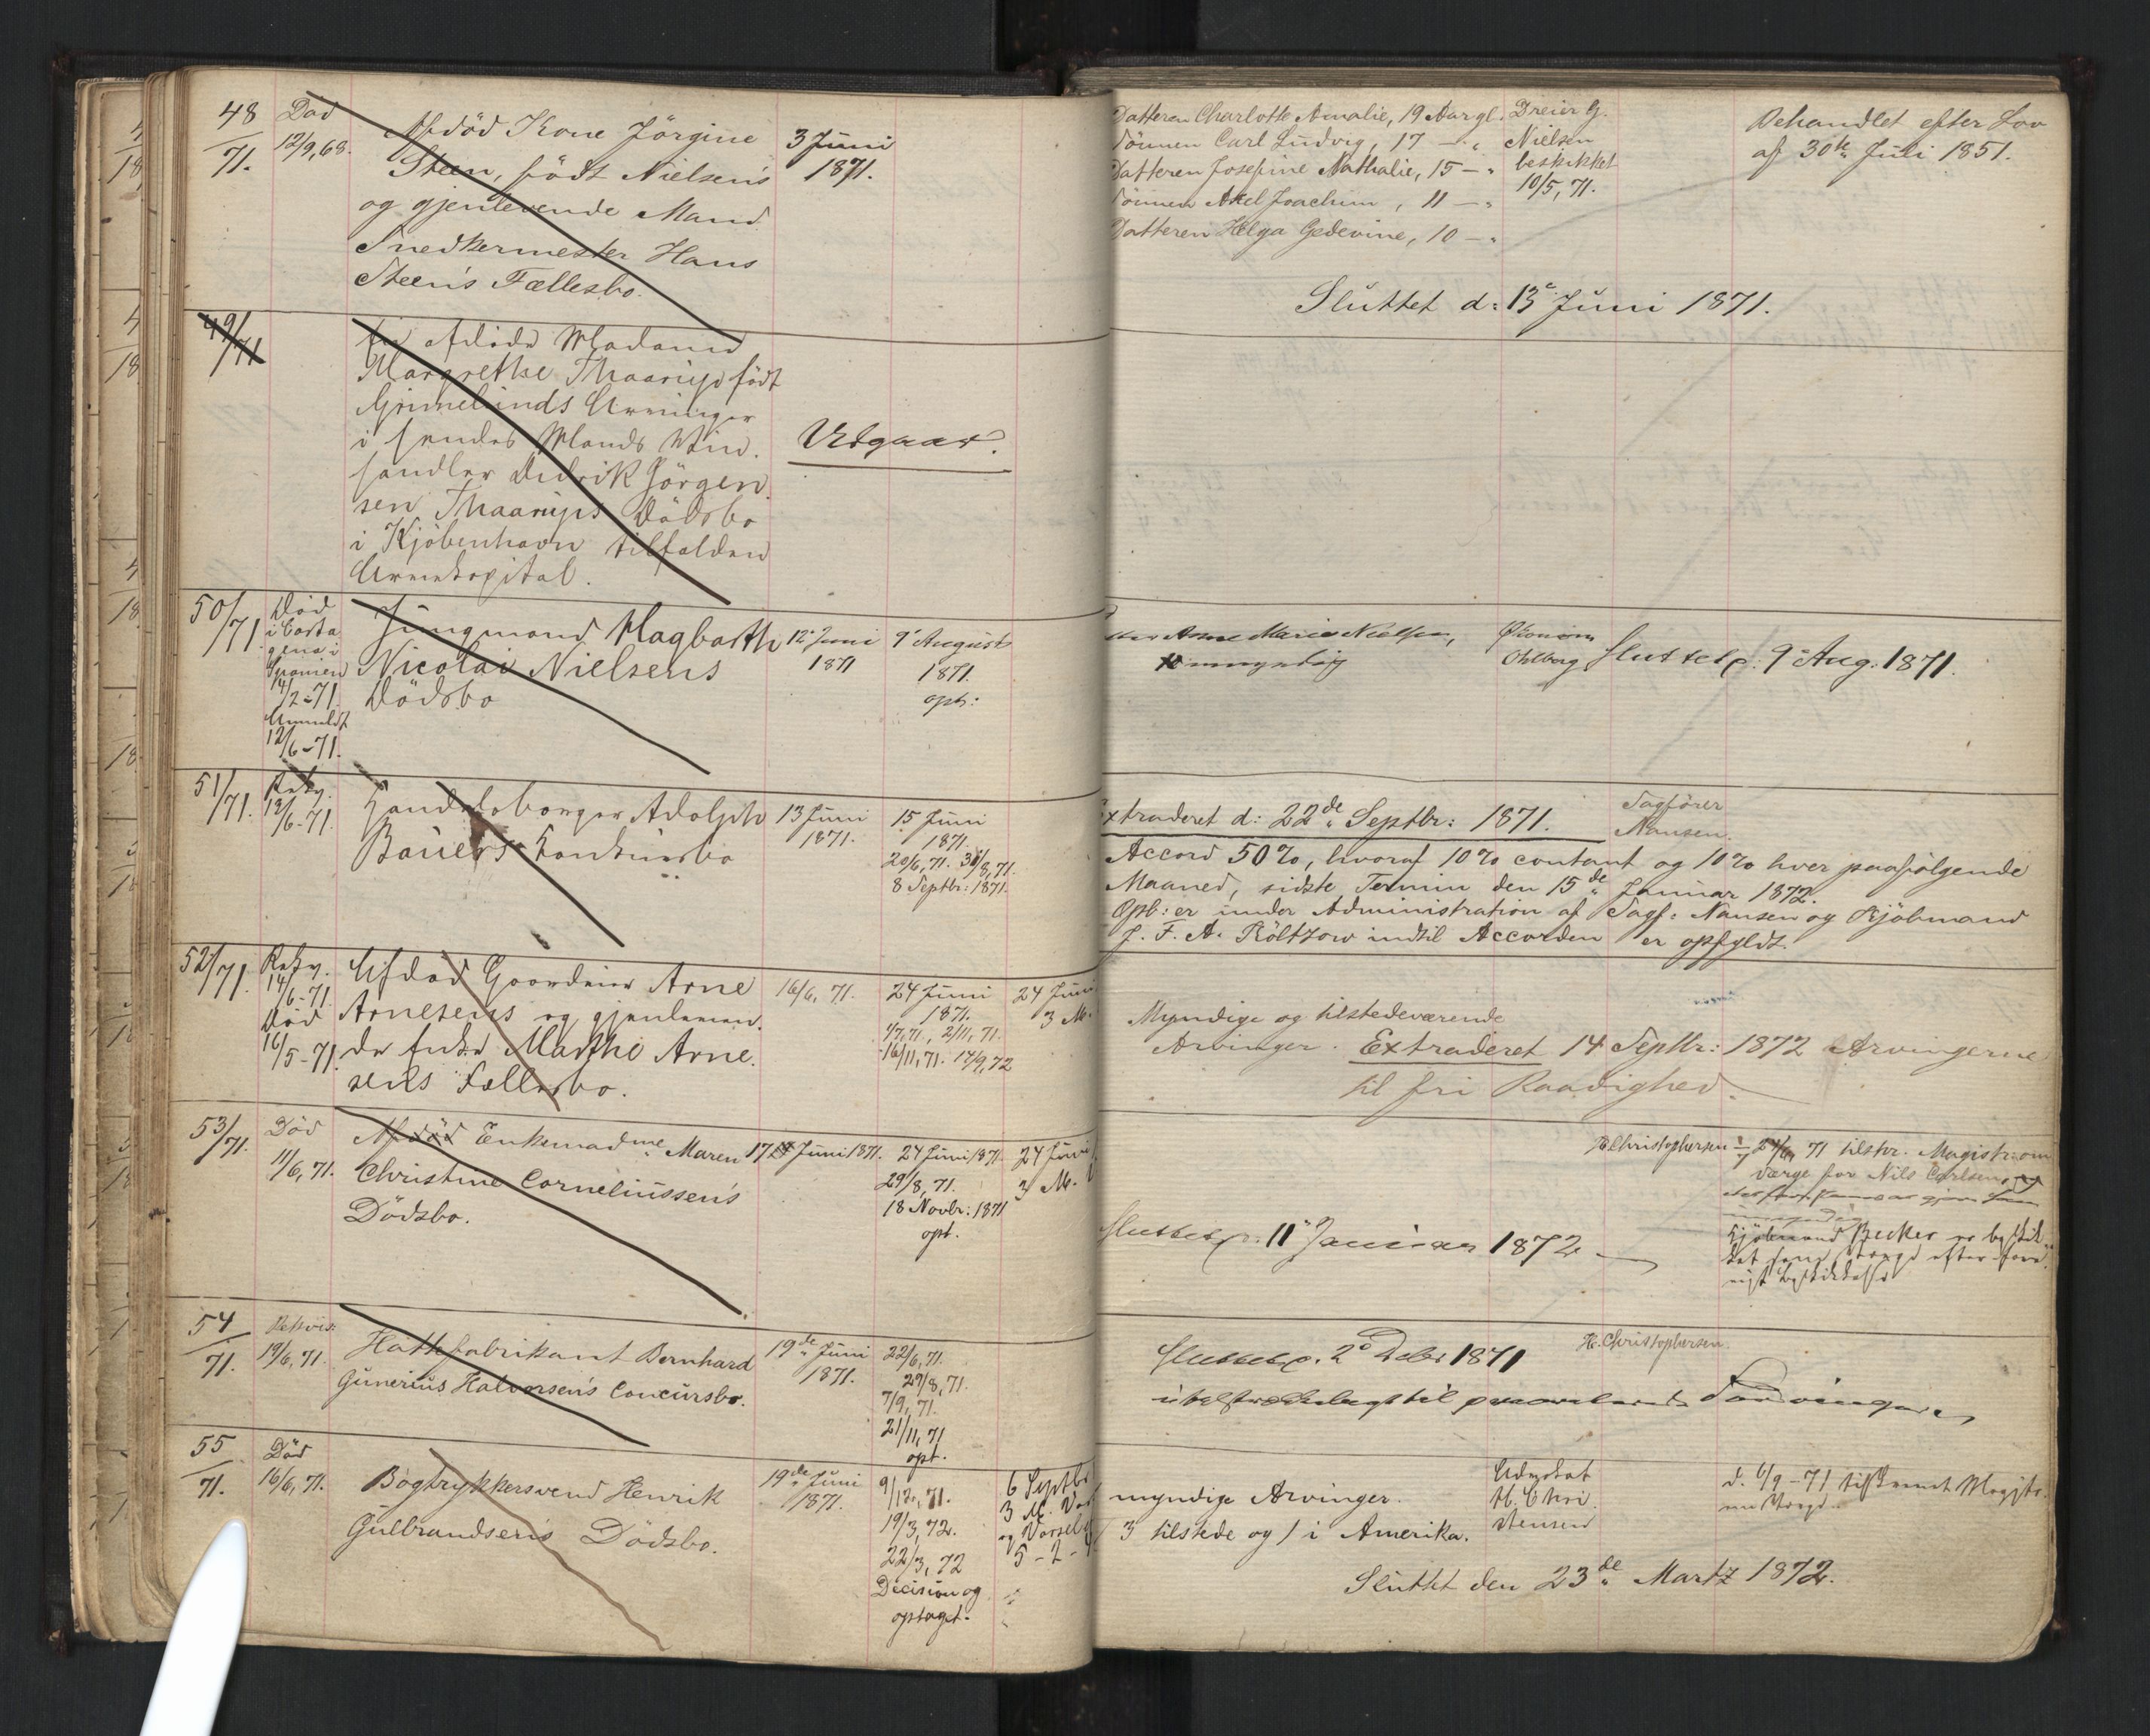 48
71.
Död
12/9, 68.
Afdöd Kone Jörgine
Steen, födt Nielsen's
og gjenlevende Mand
Snedkermester Hans
Steen's Fællesbo.
3 Juni
1871.
Datteren Charlotte Amalie, 19 Aar gl.
Sönnen Carl Ludvig, 17 — "
Datteren Josefine Nathalie, 15 — "
Sönnen Axel Joachim, 11 — "
Datteren Helga Gedevine, 10 — "
Dreier G.
Nielsen
beskikket
10/5, 71.
Behandlet efter Lov
af 30te Juli 1851.
Sluttet d: 13e Juni 1871.
49/71
afdöde Madame
Margrethe Thaarup födt
Grimelunds Arvinger
i hendes Mands Vin-
handler Didrik Jörgen-
sen Thaarups Dödsbo
i Kjöbenhavn tilfaldne
Arvekapital.
Udgaar.
50/71.
Död
i Carta
gena i
Spanien
14/2-71.
Anmeldt
12/6-71.
Jungmand Hagbarth
Nicolai Nielsens
Dödsbo
12 Juni
1871
9 August
1871.
opt:
Anne Marie Nielsen,
umyndig
Økonom
Ohlberg
Sluttet p: 9 Aug: 1871.
51/71.
Rekv.
13/6-71.
Handelsborger Adolph
Bauers Konkursbo
13 Juni
1871.
15 Juni
1871.
20/6, 71. 31/8, 71.
8 Septbr: 1871.
Extraderet d: 22de Septbr: 1871.
Sagförer
Nansen.
Accord 50%, hvoraf 10% contant og 10% hver paafölgende
Maaned, sidste Termin den 15de Januar 1872.
Opb: er under Administration af Sagf: Nansen og Kjöbmand
J. F. A. Költzow indtil Accorden er opfyldt.
52/71.
Rekv.
14/6-71.
Död
16/5-71.
Afdöd Gaardeier Arne
Arnesens og gjenleven-
de Enke Marthe Arne-
sens Fællesbo.
16/6, 71.
24 Juni
1871.
1/7, 71, 2/11, 71.
16/11, 71. 14/9, 72
24 Juni
3 M.
Myndige og tilstedeværende
Arvinger. Extraderet 14 Septbr: 1872 Arvingerne
til fri Raadighed.
53/71.
Död
11/6, 71.
Afdöd Enkemadme Maren
Christine Corneliussen's
Dödsbo.
17 Juni 1871.
24 Juni 1871.
29/8, 71.
18 Novbr: 1871
opt.
24 Juni
3 M.
H. Christophersen
24/6, 71 tilskr. Magistr: om
Værge for Nils Carlsen,
Kjöbmand Becker er beskik-
ket som Værge efter
Sluttet p: 11 Januar 1872
54
71.
Rekvis:
19/6, 71.
Hattefabrikant Bernhard
Gunerius Halvorsen's Concursbo.
19de Juni
1871.
22/6, 71.
29/8, 71.
7/9, 71.
21/11, 71
opt.
Sluttet p. 2 Debr 1871
H. Christophersen
55
71.
Död
16/6, 71.
Bogtrykkersvend Henrik
Gulbrandsen's Dödsbo.
19de Juni
1871.
9/12, 71.
19/3, 72.
22/3, 72
Decision og
optaget.
6 Septbr
3 M.
5 - 2 -
myndige Arvinger.
3 tilstede og 1 i Amerika.
Advokat
H. Chri-
stensen
d. 6/9-71 tilskrevet Magistr.
om Værge.
Sluttet den 23de Martz 1872.